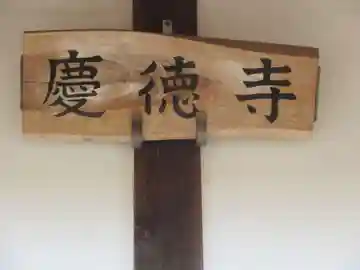 慶徳寺